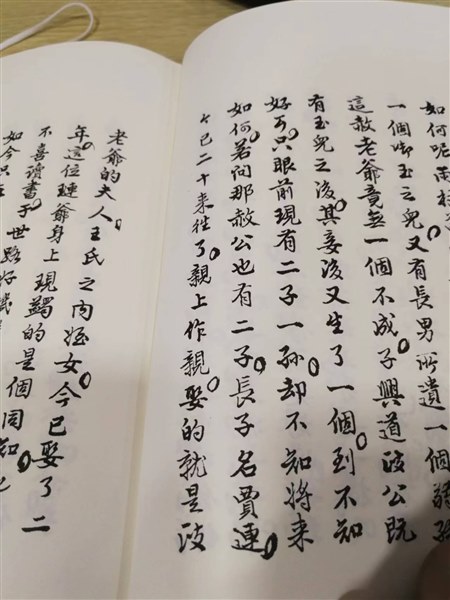 如何呢雨村
一個啣玉之兒。又有長男所遺一個弱孫
這赦老爺竟無一個不成。子興道政公既
有玉兒之後。其妾後又生了一個。到不知
好歹。只眼前現有二子一孫。却不知將来
如何。若问那赦公也有二子。長子名賈連。
今已二十来徃了。親上作親。娶的就是政
老爺的夫人。王氏之内姪女。今已娶了二
年。這位璉爺身上現蠲的是個同知。也
不喜讀書。于世路好機
如今只在